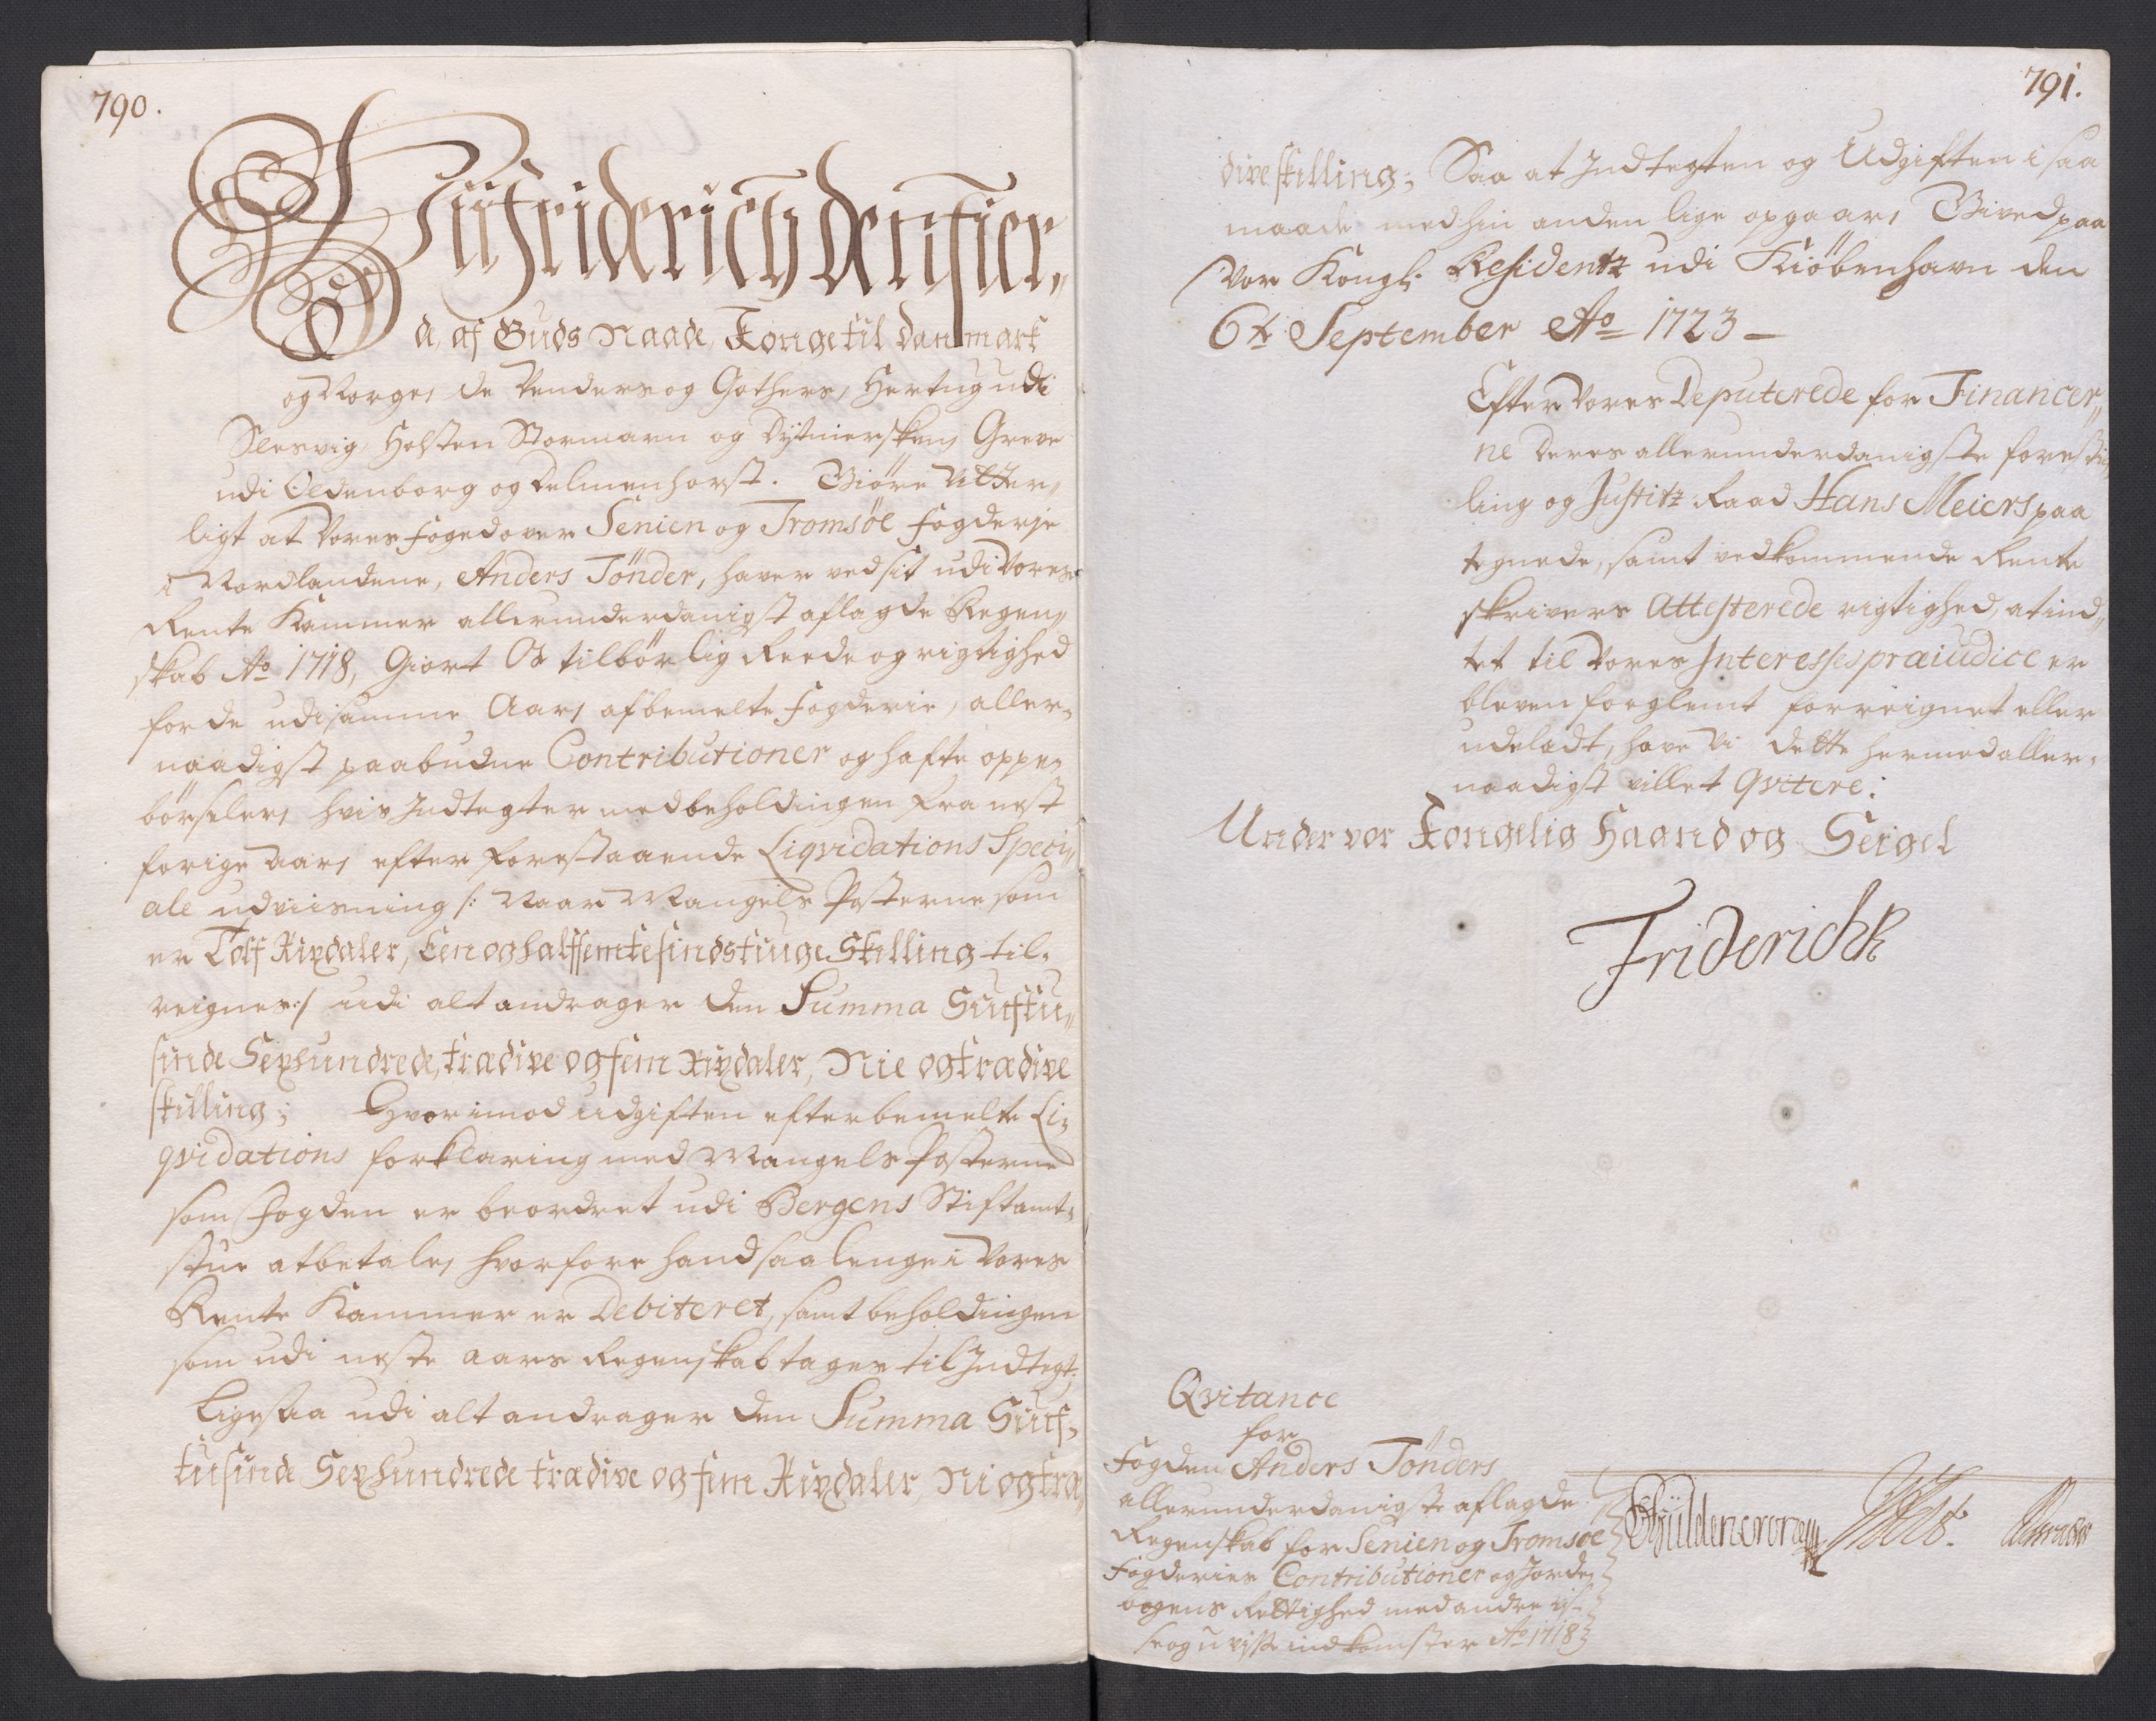 790.
Vii Friderich den Fier„
de, af Guds Naade, Konge til Danmark
og Norge, de Venders og Gothers, Hertug udi
Slesvig Holsten Stormarn og Dytmersken, Greve
udi Oldenborg og Delmenhorst. Giöre vitter„
ligt at Vores foged over Senien og Tromsöe fogderje
i Nordlandene, Anders Tönder, haver ved sit udi Vores
Rente Kammer allerunderdanigst aflagde Regen„
skab Ao 1718, Giort Os tilbörlig Reede og rigtighed
for de udi samme Aar, af bemelte fogderie, aller„
naadigst paabudne Contributioner og hafte oppe„
börseler, hvis Indtegter med beholdingen fra nest
forige Aar, efter forestaaende Liqvidations Speci„
ale udviisning /: Naar Mangels Posterne som
er Tolf Rixdaler, Een og halffemtesindstiuge Skilling til„
reignes :/ udi alt andrager den Summa Siuftu„
sinde Sexhundrede, tradive og fem Rixdaler, Nie og tradive
skilling; Hvorimod udgiften efter bemelte Li„
qvidations forklaring med Mangels Posterne
som Fogden er beordret udi Bergens Stiftamt„
stue at betale, hvorfore hand saalenge i Vores
Rente Kammer er Debiteret, samt beholdingen
som udi neste aars Regenskab tages til Indtegt,
Ligesaa udi alt andrager den Summa Siuf„
tusinde Sexhundrede tradive og fem Rixdaler, Ni og tra„
791.
dive skilling; Saa at Indtegten og Udgiften i saa
maade med hin anden lige opgaar, Gived paa
Vor Kongl. Residentz udi Kiöbenhavn den
6t. September Ao 1723 –
Efter Vores Deputerede for Financer„
ne deres allerunderdanigste forestil„
ling og Justitz Raad Hans Meiers paa
tegnede, samt vedkommende Rente
skrivers Attesterede rigtighed, at ind„
tet til Vores Interesses præiudice er
bleven forglemt forreignet eller
udeladt, have Vi dette hermed aller„
naadigst villet Qvitere.
Under vor Kongelig Haand og Seigel
Friderich R
Qvitance
for
Fogden Anders Tönders
allerunderdanigste aflagde
Regenskab for Senien og Tromsöe
Fogderies Contributioner og Jorde„
bogens Rettighed med andre vis„
se og uvisse indkomster Ao 1718
Gyldencrone